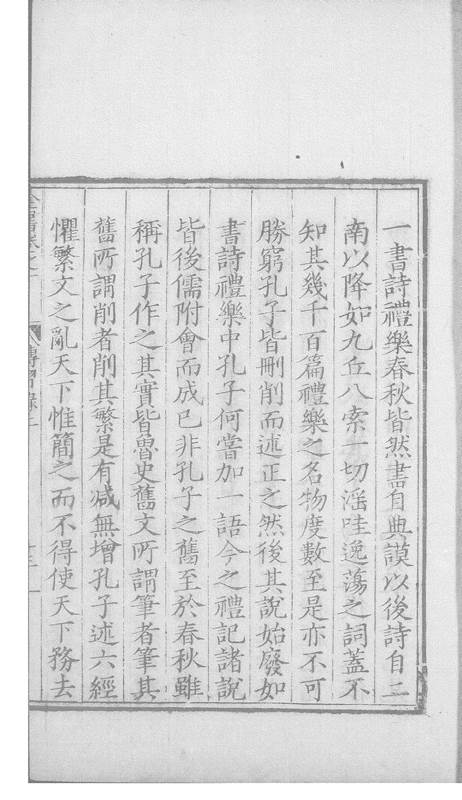 一書詩禮樂春秋皆然書自典謨以後詩自二
南以降如九丘八索一切淫哇逸蕩之詞蓋不
知其幾千百篇禮樂之名物度數至是亦不可
勝窮孔子皆刪削而述正之然後其說始廢如
書詩禮樂中孔子何嘗加一語今之禮記諸說
皆後儒附會而成已非孔子之舊至於春秋雖
稱孔子作之其實皆魯史舊文所謂筆者筆其
舊所謂削者削其繁是有減無增孔子述六經
懼繁文之亂天下惟簡之而不得使天下務去